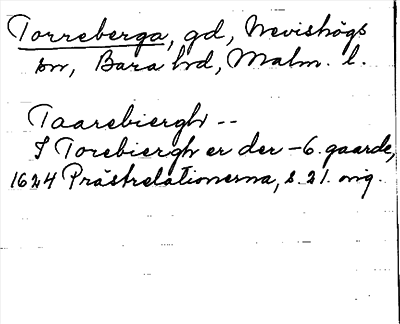 Torreberga, gd, Nevishögs
sn, Bara hd, Malm. l.
Taarebiergh --
I Torebiergh er der -6. gaarde,
1624 Prästrelationerna, s. 21. orig.